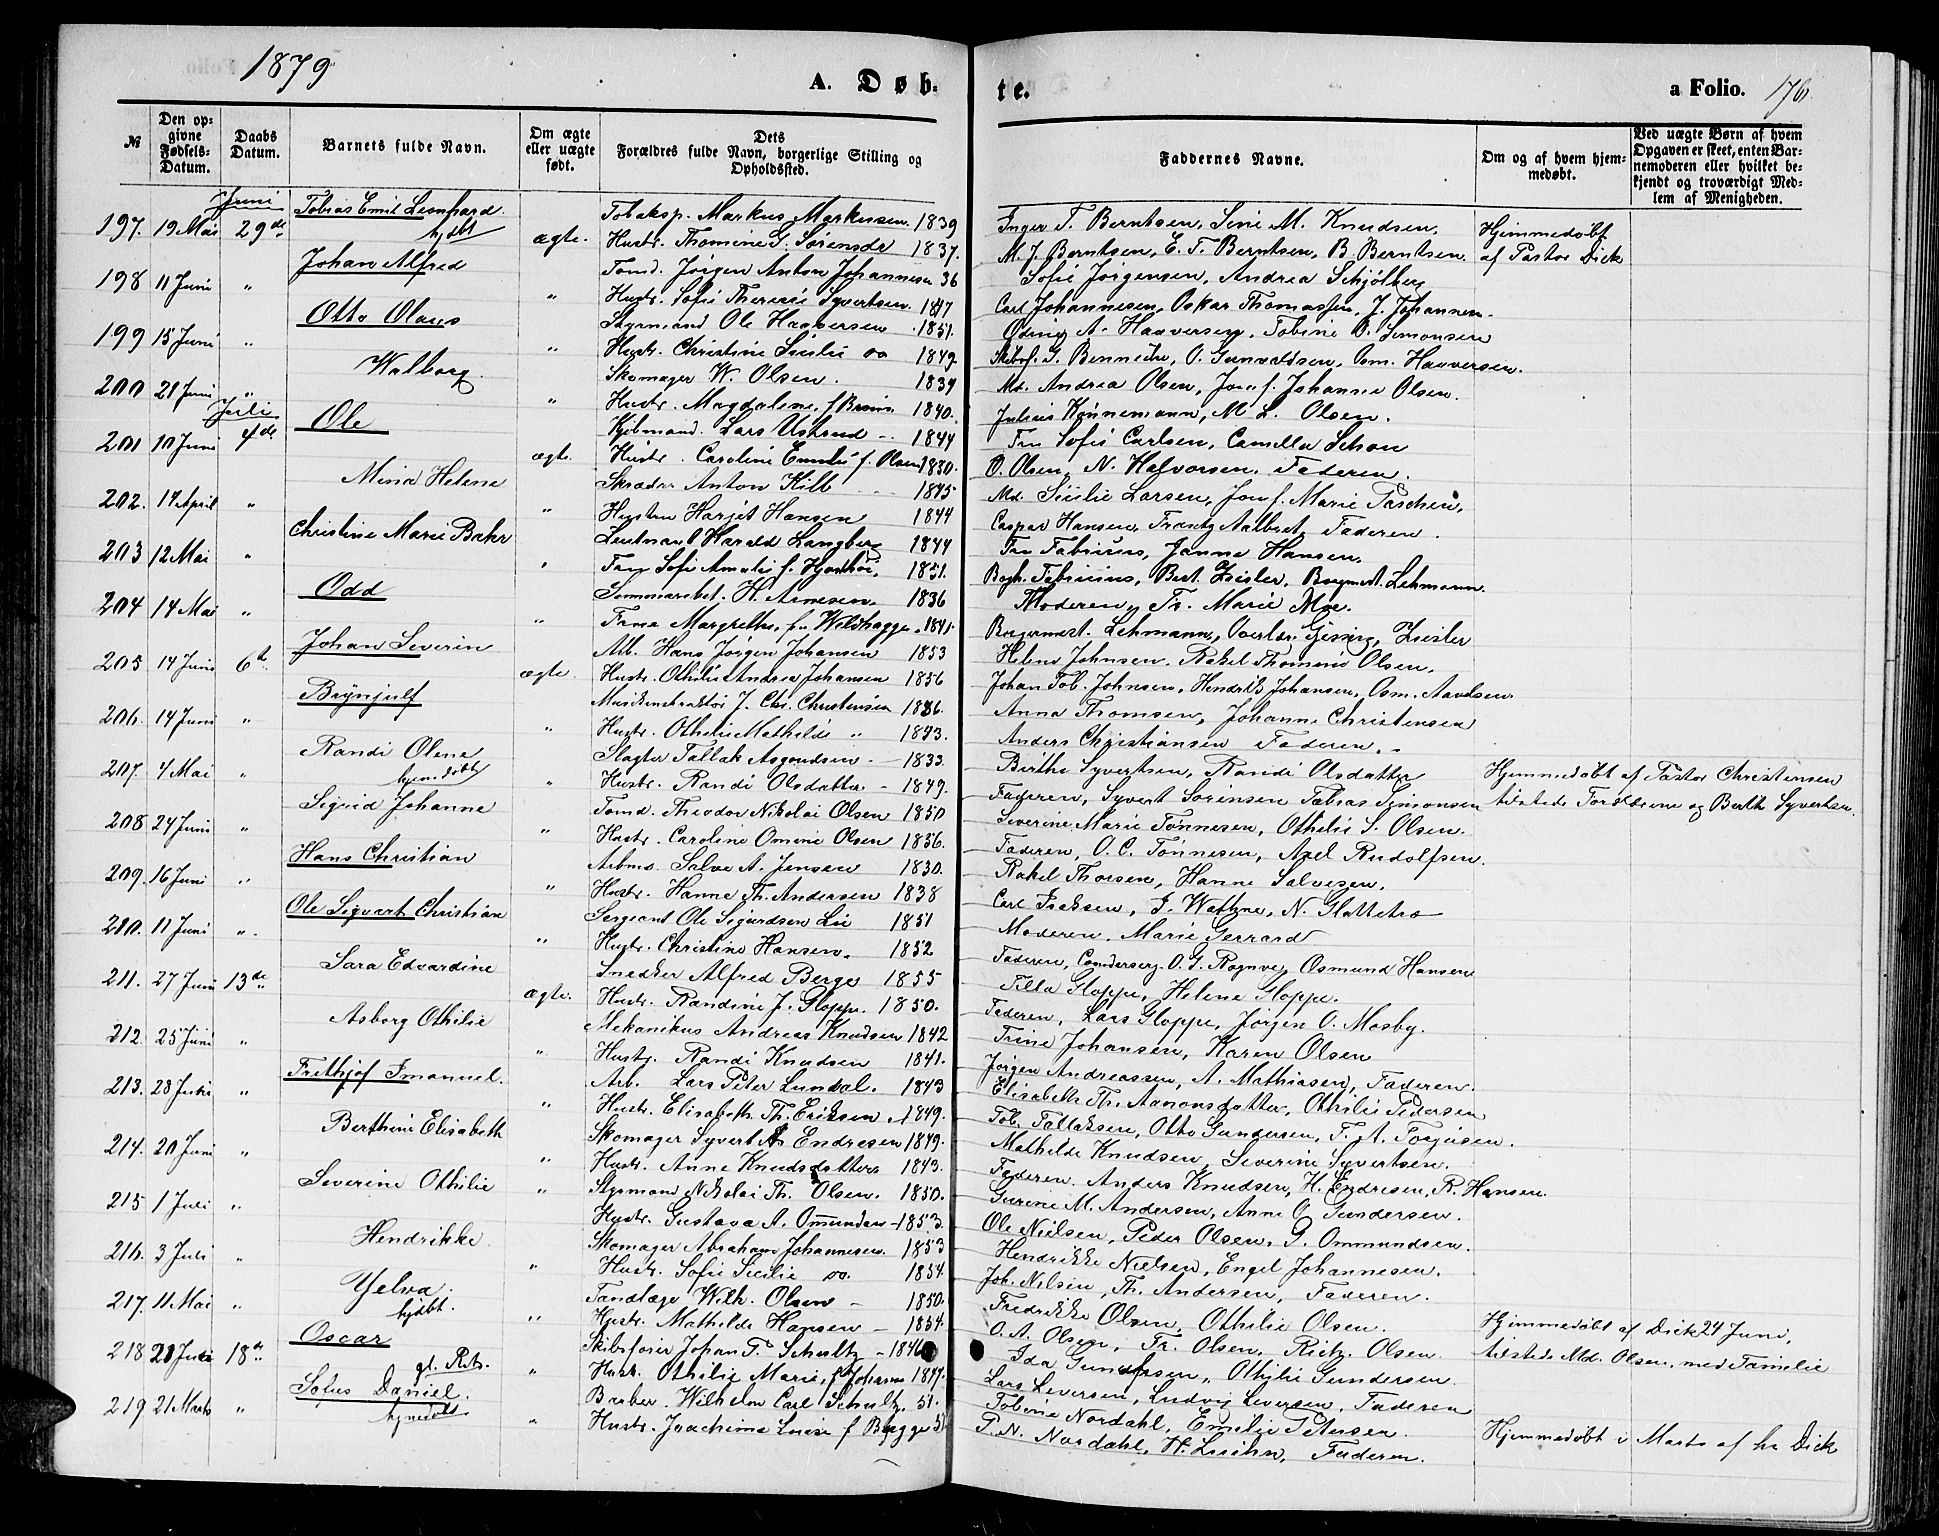 1879
A. Døb-
te.
a Folio. 176.
№
Den op-
givne
Fødsels-
Datum.
Daabs
Datum.
Barnets fulde Navn.
Om ægte
eller uægte
født.
Dets
Forældres fulde Navn, borgerlige Stilling og
Opholdssted.
Faddernes Navne.
Om og af hvem hjem-
medøbt.
Ved uægte Børn af hvem
Opgaven er skeet, enten Bar-
nemoderen eller hvilket be-
kjendt og troværdigt Med-
lem af Menigheden.
Juni
197. 19 Mai 29de Tobias Emil Leonhard hjdbt ægte.
Tobaksp. Markus Markussen. 1839
Hustr. Thomine G. Sörensdr 1837.
Inger T. Berntsen, Sine M. Knudsen,
M. J. Berntsen, E. T. Berntsen, B. Berntsen.
Hjemmedøbt
af Pastor Dick
198 11 Juni " Johan Alfred "
Tomd. Jørgen Anton Johannesen 36
Hustr. Sofie Theresie Syvertsen. 1847
Sofie Jørgensen, Andrea Schjølberg
Carl Johannesen, Oskar Thomassen, J. Johannesen.
199 15 Juni " Otto Olaus "
Styrmand Ole Haaversen 1851.
Hustr. Christine Sicilie 1849.
Oding A. Haaversen, Tobine O. Simonsen
Skibsf. G. Benniche, O. Gunvaldsen, Osm. Haaversen.
200 21 Juni " Walborg. "
Skomager W. Olsen. 1839
Hustr. Magdalene f. Bruun 1840.
Md. Andrea Olsen, Jomf. Johanne Olsen.
Julius Könnemann, M L. Olsen.
Juli
201 10 Juni 4de Ole ægte.
Kjöbmand. Lars Ustrud 1844
Hustr. Caroline Emilie f. Olsen 1830.
Fru Sofie Carlsen, Camilla Schou
O. Olsen, N. Halvorsen, Faderen.
202. 17 April " Mina Helene "
Skræder Anton Kill 1845
Hustru Harjet Hansen 1844
Md. Sicilie Larsen, Jomf. Marie Paschen,
Caspar Hansen, Frantz Aalbret, Faderen.
203 12 Mai " Christine Marie Bahr "
Leutnant Harald Langberg 1844
Fru Sofie Amalie f. 1851.
Fru Fabricius, Janna Hansen,
Bogh. Fabricius, Bert. Zeisler, Borgmst. Lehmann.
204 14 Mai " Odd "
H. Arnesen. 1836
Frue Margrethe, f. Wildhagge. 1841.
Moderen, Fr. Marie Moe.
Borgermest. Lehmann, Overlær. Gissing, Zeisler
205 14 Juni 6te Johan Severin ægte.
Arb. Hans Jørgen Johansen 1853
Hustr. Othilie Andrea Johansen 1856
Helene Johnsen, Rakel Thomine Olsen,
Johan Tob. Johnsen, Hendrik Johansen, Osm. Aanelsen.
206. 14 Juni " Brynjulf "
J. Chr. Christensen 1836.
Hustr. Othilie Mathilde " 1843.
Anna Thomsen, Johanne Christensen
Anders Christiansen Faderen.
207. 4 Mai " Randi Olene hjemdøbt "
Slagter Tallak Asgundsen 1833.
Hustr. Randi Olsdatter 1849.
Birthe Syvertsen, Randi Olsdatter
Faderen, Syvert Sörensen Tobias Simonsen
Hjemmedøbt af Pastor Christensen
tilstede Forældrene og Berth Syvertsen.
208 24 Juni " Sigrid Johanne "
Tomd. Theodor Nikolai Olsen 1850
Hustr. Caroline Omine Olsen 1856.
Severine Marie Tönnesen, Othilie S. Olsen.
Faderen, O. C. Tönnesen, Axel Rudolfsen.
209. 16 Juni " Hans Christian "
Arbmd. Salve A. Jensen 1830.
Hustr. Hanne Th. Andersen 1838
Rakel Thorsen, Hanne Salvesen.
Carl Iraksen, J. Wathne, N. Slottebo
210. 11 Juni " Ole Sigvart Christian "
Sergeant Ole Sigurdsen Lie 1851
Hustr. Christine Hansen. 1852
Moderen, Marie Gerrard
Faderen, Comdersserg. O. G. Rognve, Osmund Hansen
211. 27 Juni 13de Sara Edvardine ægte.
Snedker Alfred Berge 1855
Hustr. Randine f. Gloppe. 1850.
Tilla Gloppe, Helene Gloppe.
Faderen, Lars Gloppe, Jörgen O. Mosby.
212. 25 Juni " Asborg Othilie "
Mekanikus Andreas Knudsen 1842
Hustr. Randi Knudsen 1841.
Trine Johansen, Karen Olsen
Jörgen Andreassen, A. Mathiasen, Faderen.
213. 28 Juni " Frithjof Imanuel. "
Arb. Lars Peter Lundal. 1843
Hustr. Elisabeth Th. Eriksen. 1849.
Elisabeth Th. Aanonsdatter, Othilie Pedersen
Tob. Tallaksen, Otto Gundersen, T. A. Torjusen.
214. 20 Juni " Berthine Elisabeth "
Skomager Syvert A Endresen 1849.
Hustr. Anne Knudsdatter 1843.
Mathilde Knudsen, Severine Syvertsen.
Faderen. Anders Knudsen, H. Endresen, R. Hansen.
215 1 Juli " Severine Othilie "
Styrmand Nikolai Th. Olsen. 1850.
Hustr. Gustava A. Omundsen 1853.
Gurine M. Andersen, Anne O Gundersen.
Ole Nielsen, Peder Olsen, G. Ommundsen.
216. 3 Juli " Hendrikke. "
Skomager Abraham Johannesen. 1853
Hustr. Sofie Sicilie 1854.
Hendrikke Nielsen, Engel Johannesen.
Joh. Nilsen, Th. Andersen, Faderen.
217. 11 Mai " Yelva. hjdbt. "
Tandlæge Wilh. Olsen 1850.
Hustr. Mathilde Hansen 1854.
Fredrikke Olsen, Othilie Olsen.
O. A. Olsen, Fr. Olsen, Rich. Olsen.
Hjemmedøbt af Dick 24 Juni,
tilstede Md. Olsen, med Familie
218 21 Juni 18de Oscar gl. Rits. "
Skibsfører Johan T. Schultz 1846
Hustr. Othilie Marie, 1847.
Ida Gundersen, Othilie Gundersen.
Lars Seversen, Ludvig Seversen, Faderen
219 21 Marts " Sofus Daniel. hjmedøbt "
Barber. Wilhelm Carl Schultz. 51.
Hustr. Joachime Luise f Bugge 51
Tobine Nordahl, Emilie Petersen.
P. N. Nordahl, H. Luihn, Faderen.
Hjemmedøbt i Marts af hr Dick